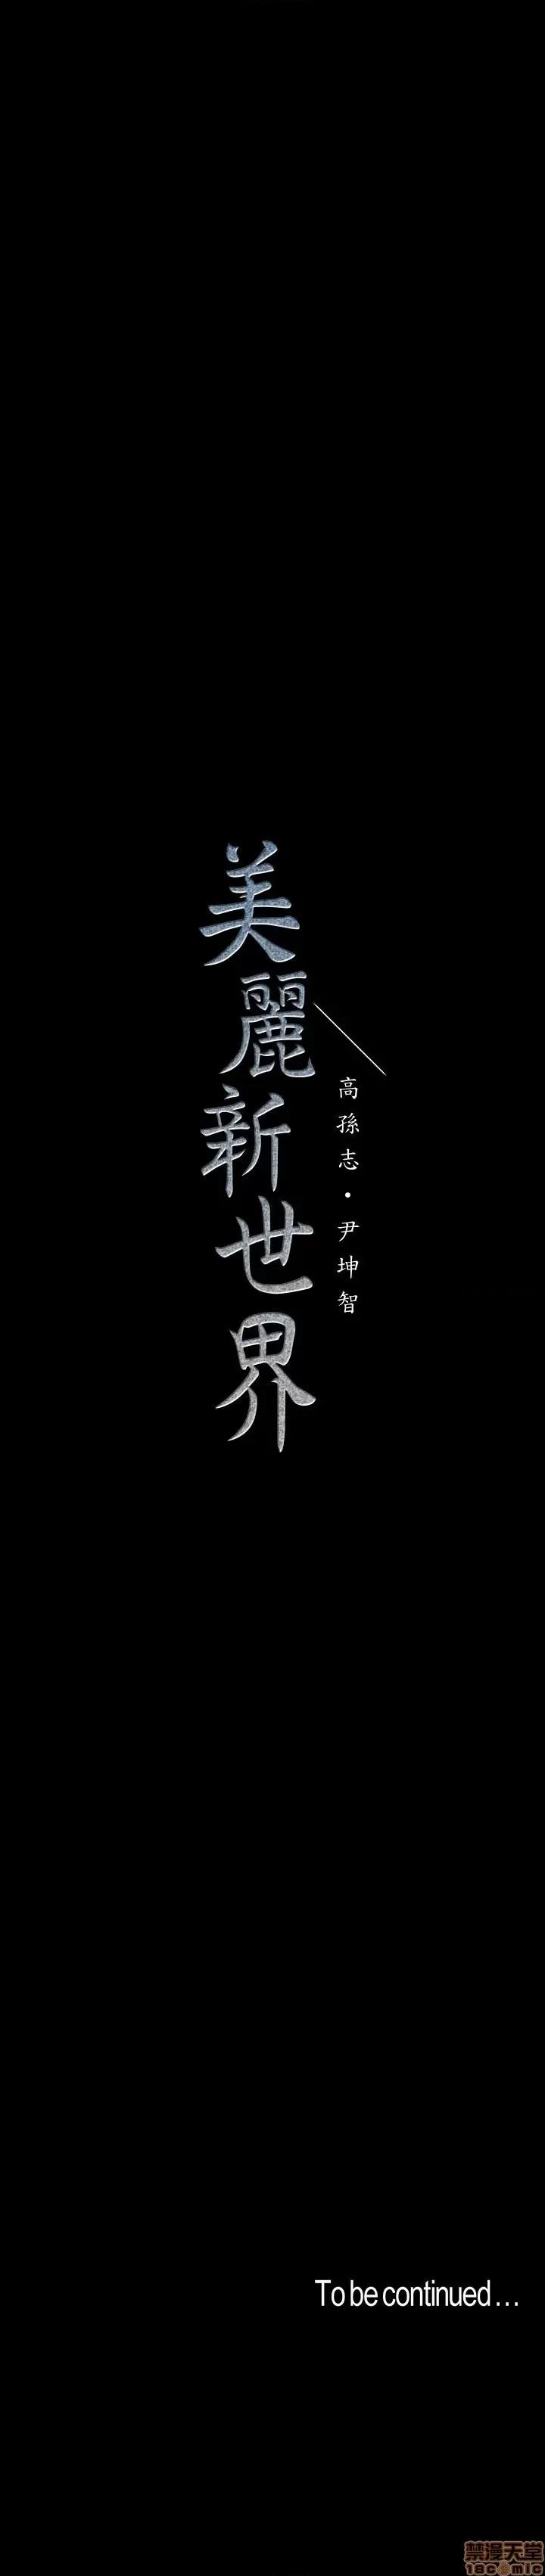 美麗新世界
高孫志・尹坤智
To be continued...
禁漫天堂
18comic